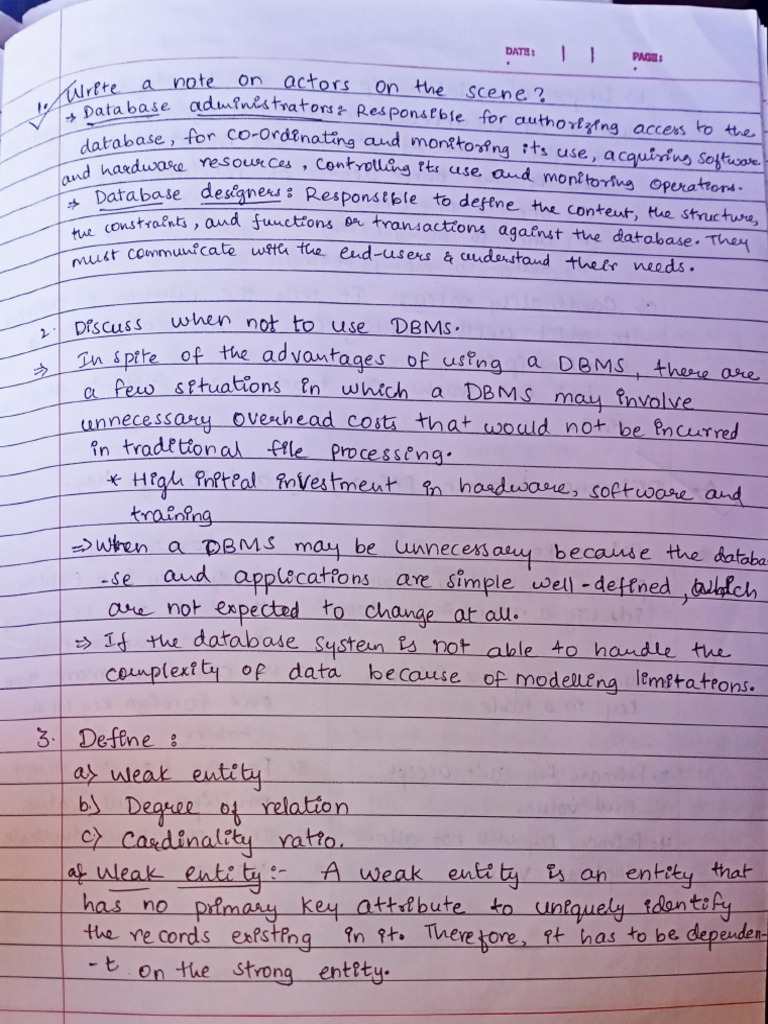 DATE: | | PAGE:
1. Write a note on actors on the scene?
→ Database administrators: Responsible for authorizing access to the
database, for co-ordinating and monitoring its use, acquiring software
and hardware resources, controlling its use and monitoring operations.
⇒ Database designers: Responsible to define the content, the structure,
the constraints, and functions or transactions against the database. They
must communicate with the end-users & understand their needs.
2. Discuss when not to use DBMS.
⇒ In spite of the advantages of using a DBMS, there are
a few situations in which a DBMS may involve
unnecessary overhead costs that would not be incurred
in traditional file processing.
* High initial investment in hardware, software and
training
⇒ When a DBMS may be unnecessary because the databa
-se and applications are simple well-defined, which
are not expected to change at all.
⇒ If the database system is not able to handle the
complexity of data because of modelling limitations.
3. Define :
a) weak entity
b) Degree of relation
c) Cardinality ratio.
a) Weak entity:- A weak entity is an entity that
has no primary key attribute to uniquely identify
the records existing in it. Therefore, it has to be dependen-
-t on the strong entity.